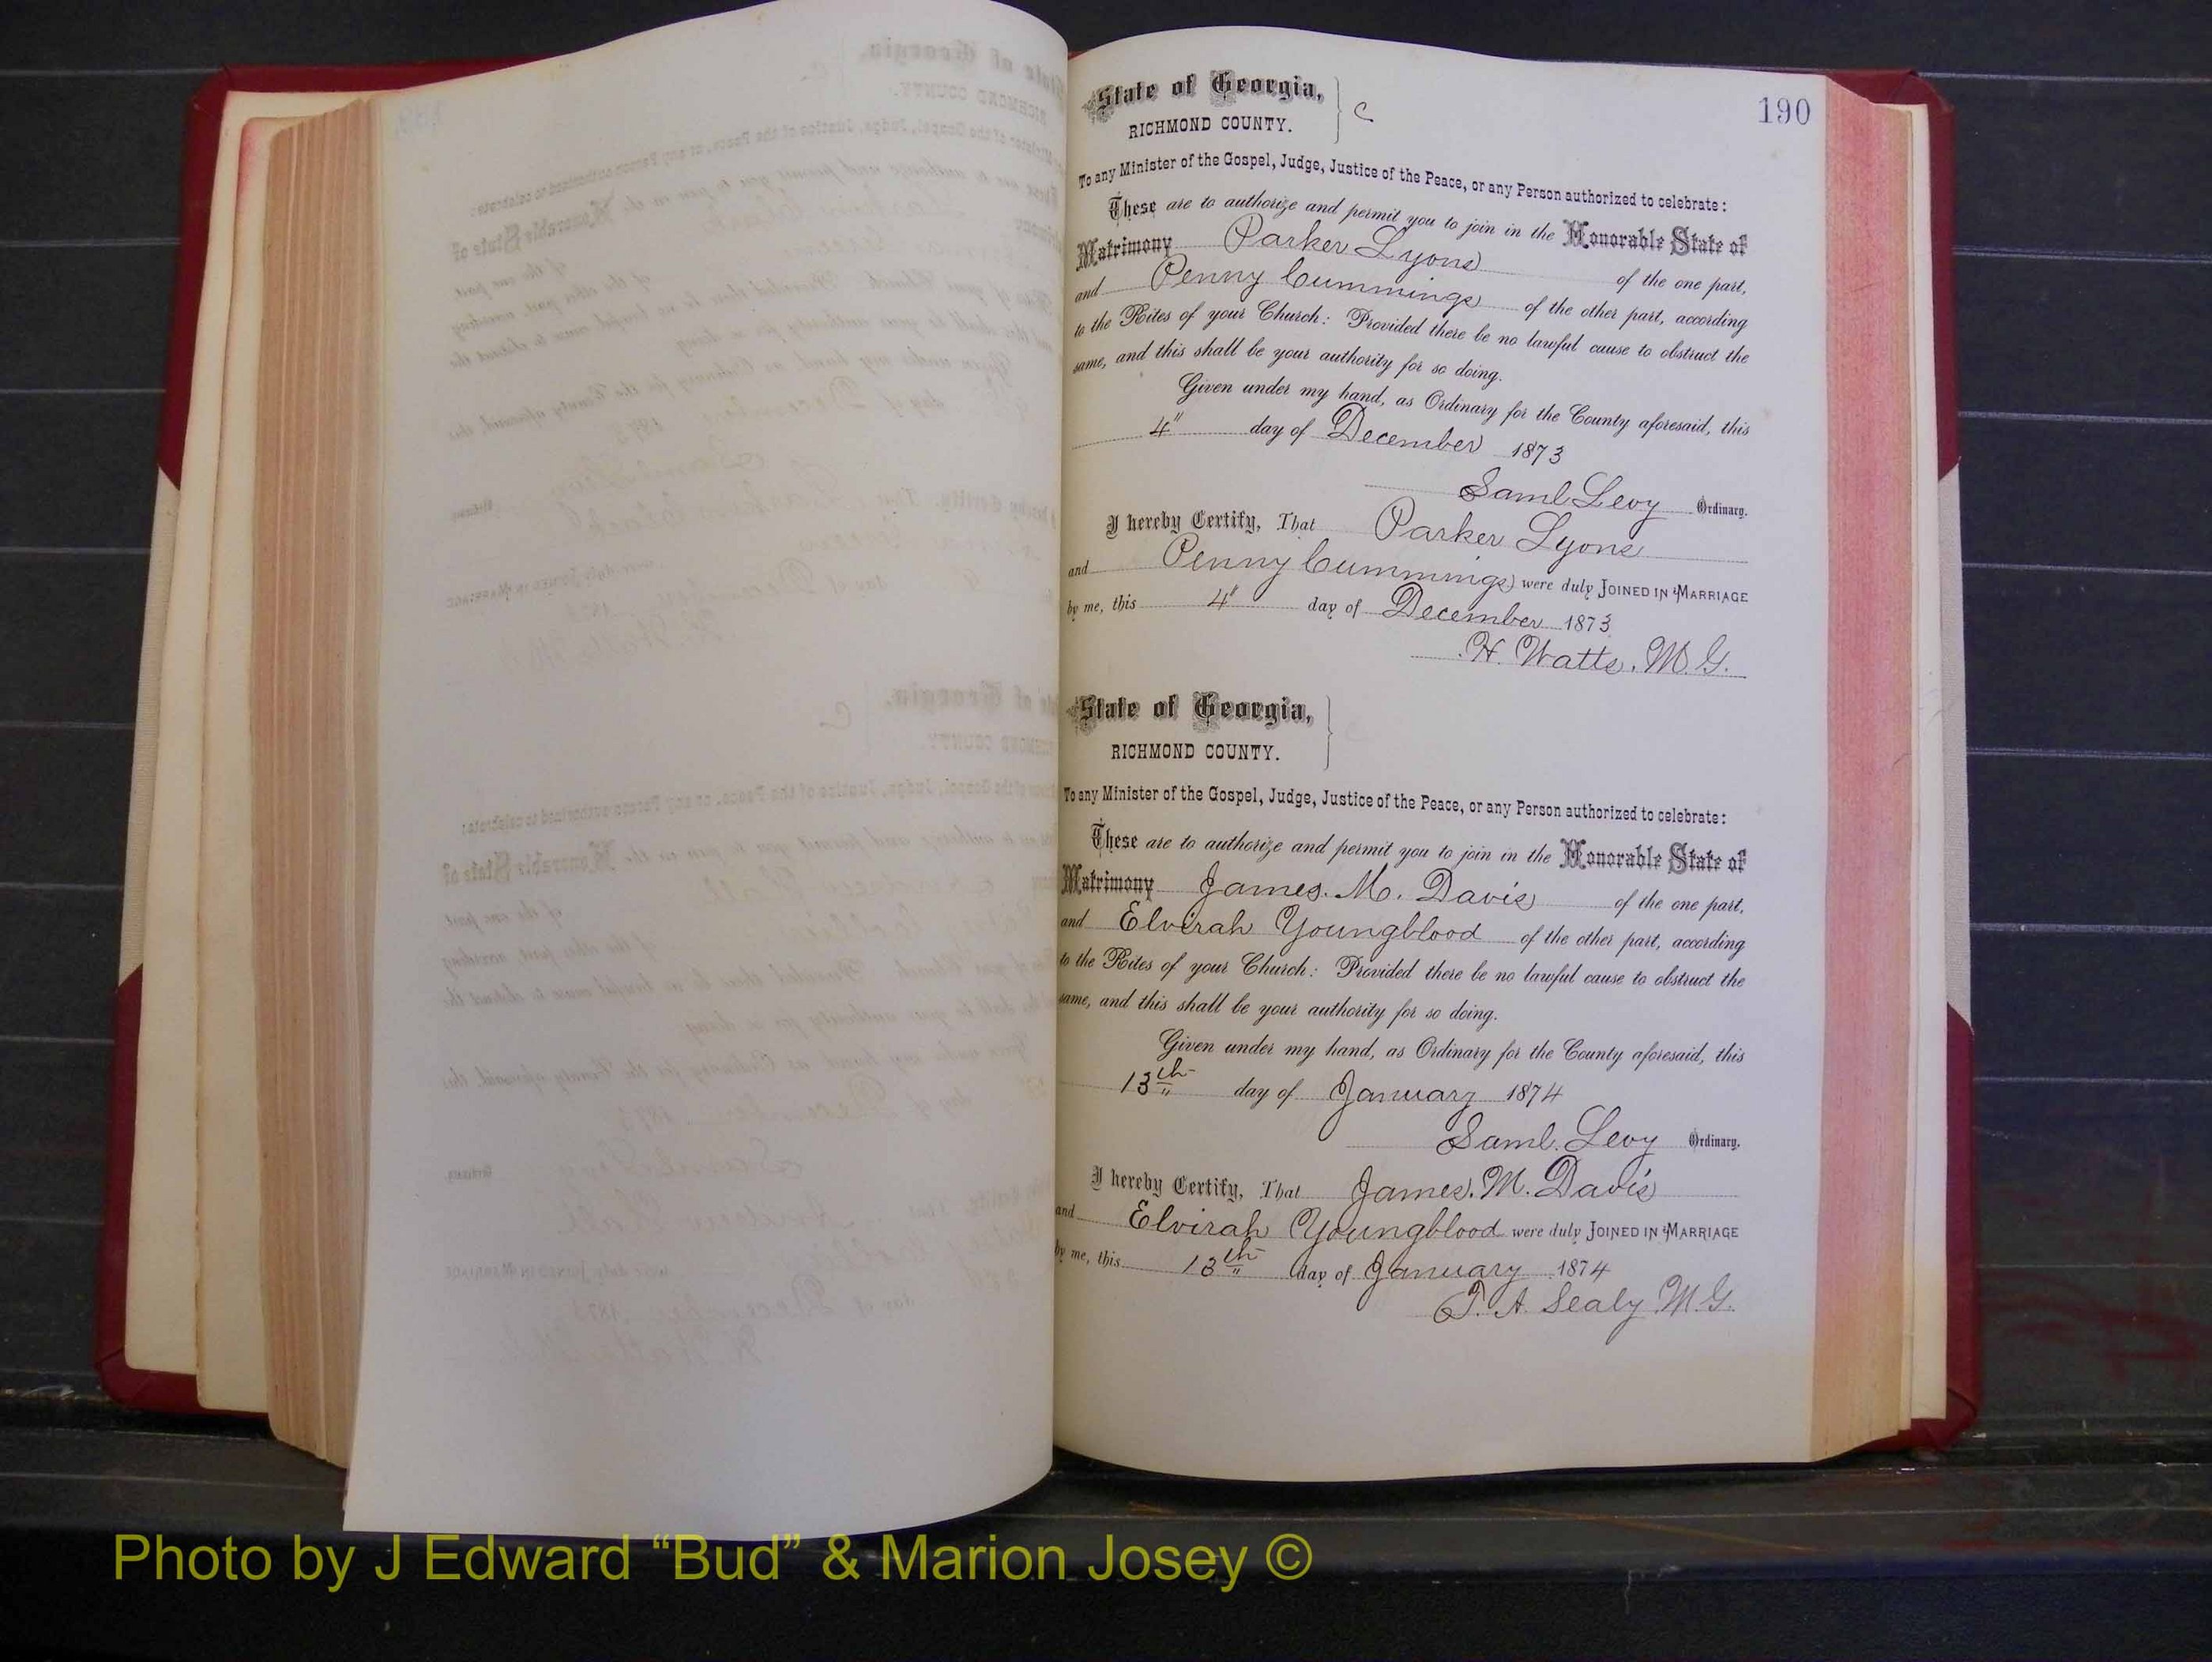 190
State of Georgia,
RICHMOND COUNTY. } C
To any Minister of the Gospel, Judge, Justice of the Peace, or any Person authorized to celebrate:
These are to authorize and permit you to join in the Honorable State of
Matrimony Parker Lyons of the one part,
and Penny Cummings of the other part, according
to the Rites of your Church: Provided there be no lawful cause to obstruct the
same, and this shall be your authority for so doing.
Given under my hand, as Ordinary for the County aforesaid, this
4" day of December 1873
Saml Levy Ordinary.
I hereby Certify, That Parker Lyons
and Penny Cummings were duly JOINED IN MARRIAGE
by me, this 4" day of December 1873
H. Watts. M. G.
State of Georgia,
RICHMOND COUNTY. }
To any Minister of the Gospel, Judge, Justice of the Peace, or any Person authorized to celebrate:
These are to authorize and permit you to join in the Honorable State of
Matrimony James. M. Davis of the one part,
and Elvirah Youngblood of the other part, according
to the Rites of your Church: Provided there be no lawful cause to obstruct the
same, and this shall be your authority for so doing.
Given under my hand, as Ordinary for the County aforesaid, this
13th day of January 1874
Saml. Levy Ordinary.
I hereby Certify, That James. M. Davis
and Elvirah Youngblood were duly JOINED IN MARRIAGE
by me, this 13th day of January 1874
T. A. Sealy M. G.
Photo by J Edward “Bud” & Marion Josey ©